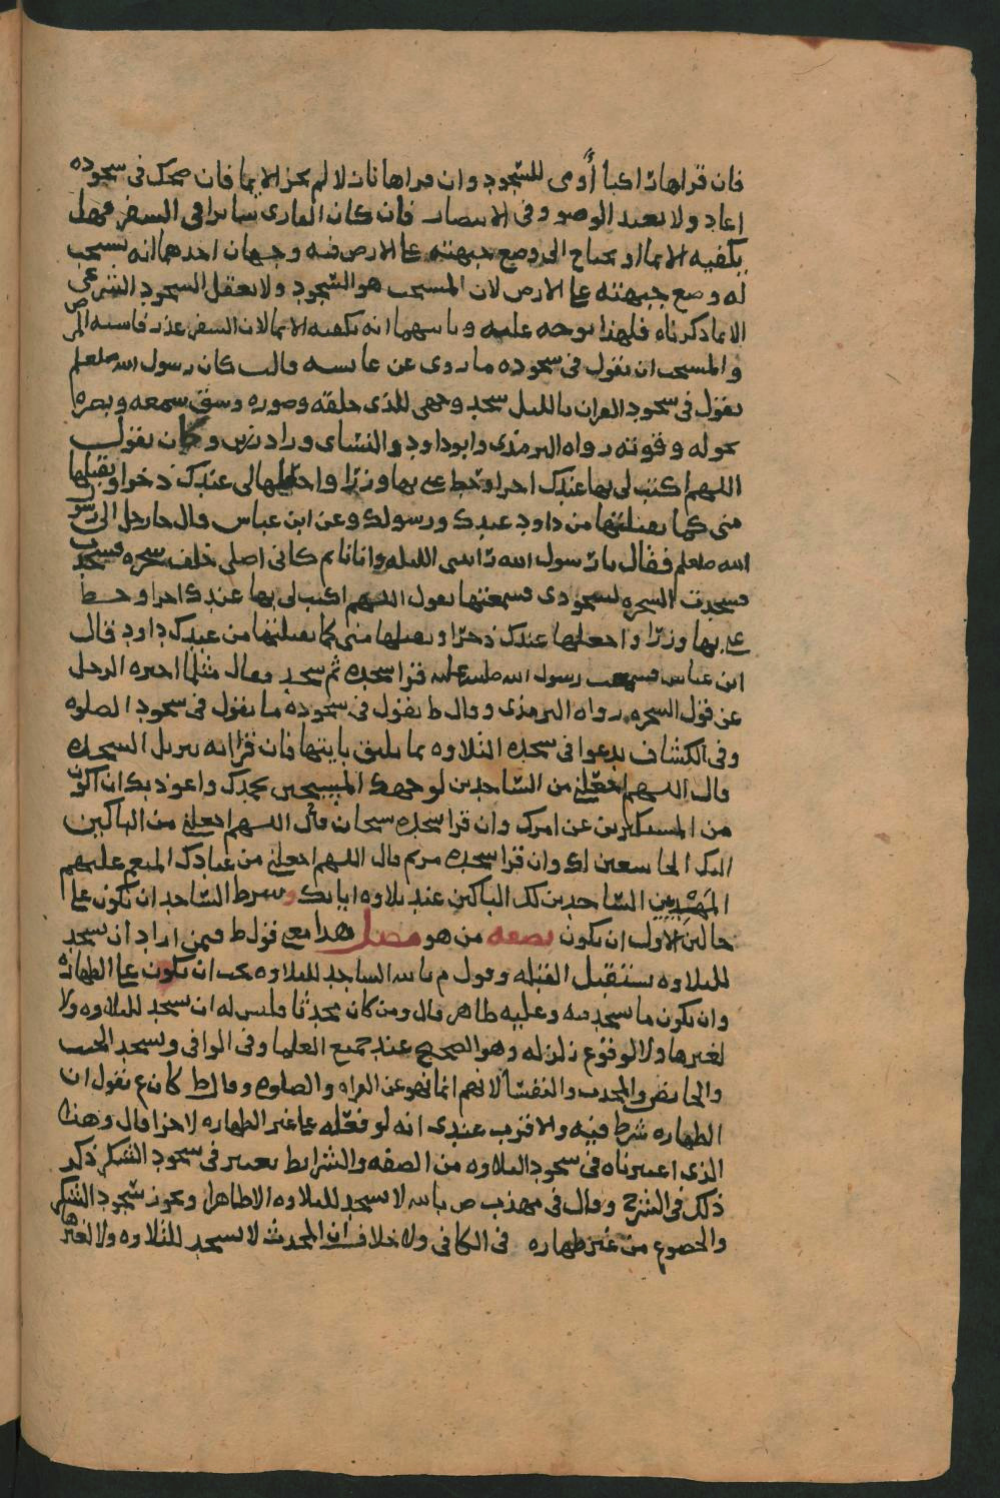 فان قراها راكبا أومى للسجود وان قراها نازلا لم يجز الايما فان ضحك فى سجوده
اعاد ولا يعيد الوضو وفى الانتصار فان كان القارى سائرا فى السفر فهل
يكفيه الايما او يحتاج الى وضع جبهته على الارض فيه وجهان احدهما انه يستحب
له وضع جبهته على الارض لان المستحب هو السجود ولا يعقل السجود الشرعى
الا بما ذكرناه فلهذا توجه عليه وثانيهما انه يكفيه الايما لان السفر عذر
والمستحب ان يقول فى سجوده ما روى عن عائشه قالت كان رسول الله صلعلم
يقول فى سجود القران بالليل سجد وجهى للذى خلقه وصوره وشق سمعه وبصره
بحوله وقوته رواه الترمذى وابو داود والنساى وزاد رزين وكان يقول
اللهم اكتب لى بها عندك اجرا وحط عنى بها وزرا واجعلها لى عندك ذخرا وتقبلها
منى كما تقبلتها من داود عبدك ورسولك وعن ابن عباس قال جا رجل الى رسول
الله صلعلم فقال يا رسول الله رايتنى الليله وانا نايم كانى اصلى خلف شجره فسجدت
فسجدت الشجره لسجودى فسمعتها تقول اللهم اكتب لى بها عندك اجرا وحط
عنى بها وزرا واجعلها عندك ذخرا وتقبلها منى كما تقبلتها من عبدك داود قال
ابن عباس فسمعت رسول الله صلى الله عليه قرا سجده ثم سجد فقال مثل ما اخبره الرجل
عن قول الشجره رواه الترمذى وقال ط يقول فى سجوده ما يقول فى سجود الصلوه
وفى الكشاف يدعوا فى سجده التلاوه بما يليق بايتها فان قرا ايه تنزيل السجده
قال اللهم اجعلنى من الساجدين لوجهك المسبحين بحمدك واعوذ بك ان اكون
من المستكبرين عن امرك وان قرا سجده سبحان قال اللهم اجعلنى من الباكين
اليك الخاشعين لك وان قرا سجده مريم قال اللهم اجعلنى من عبادك المنعم عليهم
المهتدين الساجدين لك الباكين عند تلاوه اياتك وشرط الساجد ان يكون على
حالين الاول ان يكون بصفه من هو مصل هذا مع قول ط فيمن اراد ان يسجد
للتلاوه يستقبل القبله وقول م بالله الساجد للتلاوه يجب ان يكون على الطهاره
وان يكون ما يسجد فيه وعليه طاهر قال ومن كان محدثا فليس له ان يسجد للتلاوه ولا
لغيرها ولا لوقوع زلزله وهو الصحيح عند جميع العلما وفى الوافى ويسجد الجنب
والحايض والمحدث والنفسا لانهم انما نهو عن القراه والصلوه وقال ط كان ع يقول ان
الطهاره شرط فيه والاقرب عندى انه لو فعله على غير الطهاره لاجزا قال وهذا
الذى اعتبرناه فى سجود التلاوه من الصفه والشرايط يعتبر فى سجود الشكر ذكر
ذلك فى الشرح وقال فى مهذب ص بالله لا يسجد للتلاوه الا طاهرا ويجوز سجود الشكر
والخضوع من غير طهاره فى الكافى ولا خلاف ان المحدث لا يسجد للتلاوه ولا لغيرها